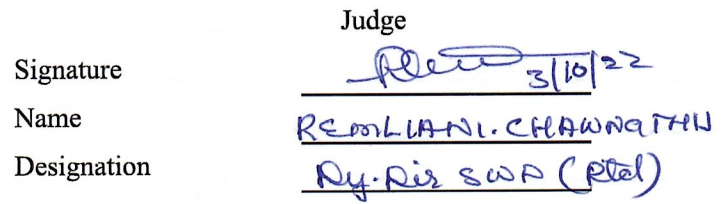 Judge
Signature 3/10/22
Name REMLIANI. CHAWNGTHU
Designation Dy. Dir SWD (Rtd)